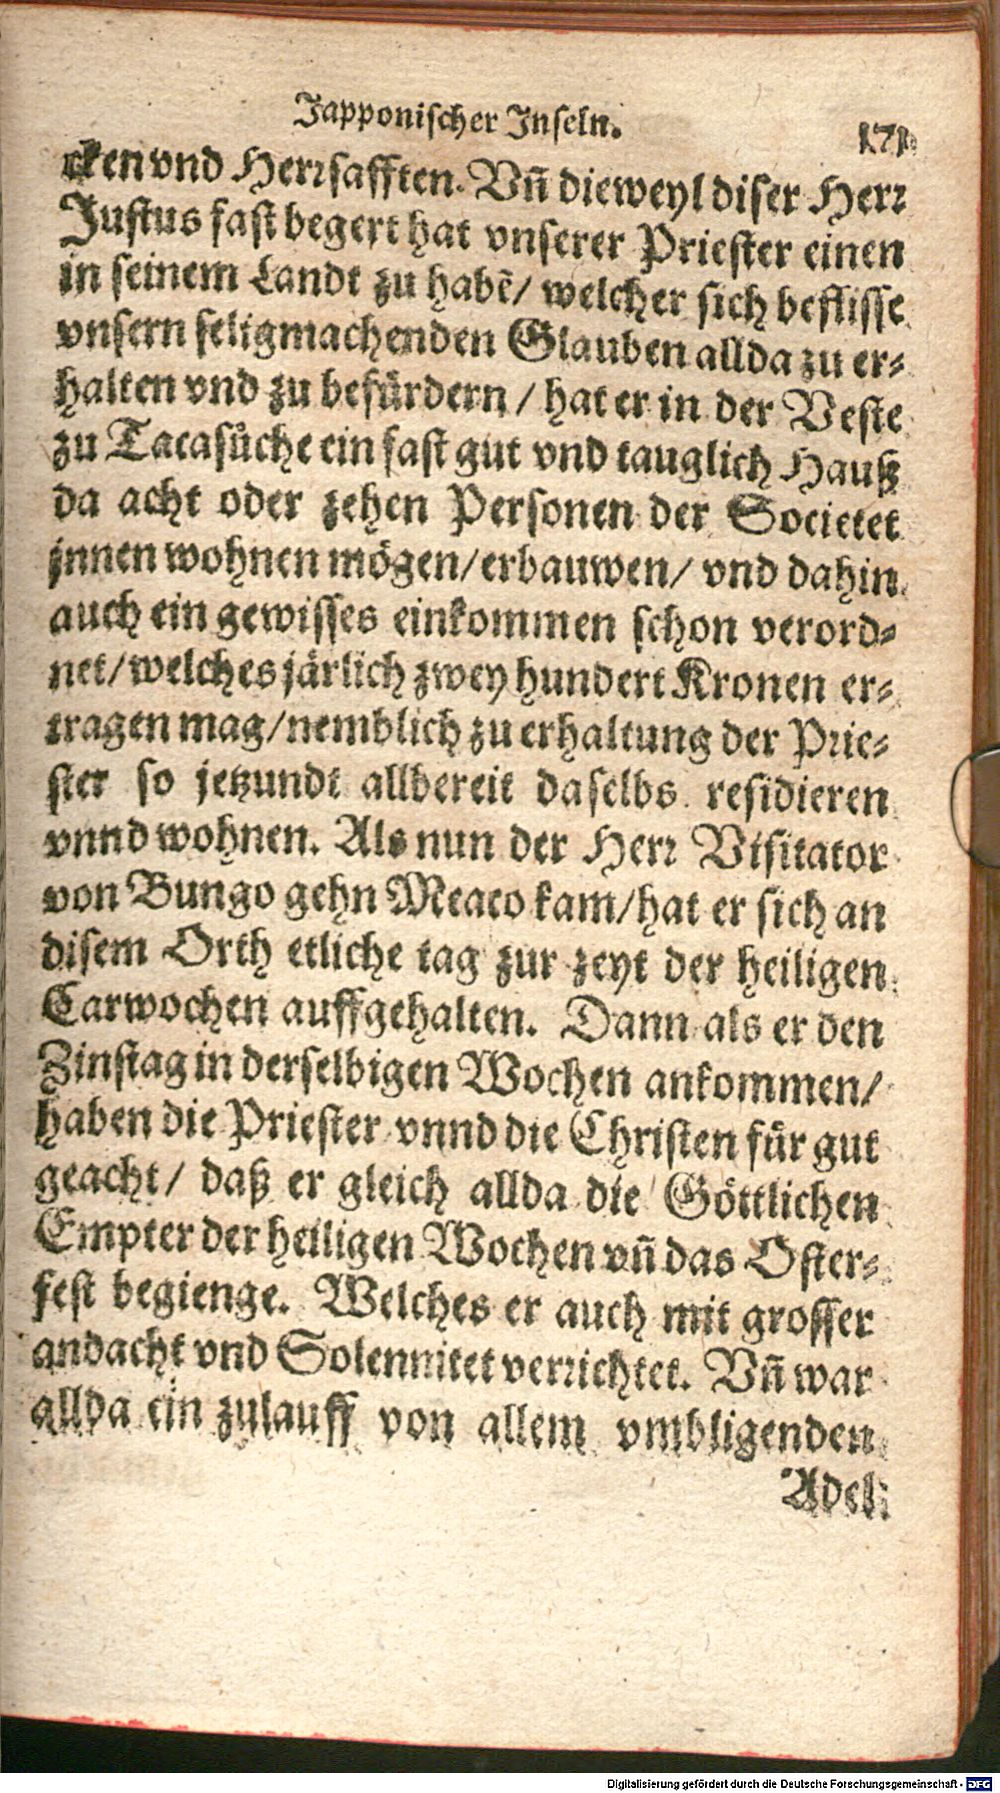 Japponischer Inseln.
171
cken vnd Herrsafften. Vñ dieweyl diser Herr
Justus fast begert hat vnserer Priester einen
in seinem Landt zu habẽ/ welcher sich beflisse
vnsern seligmachenden Glauben allda zu er-
halten vnd zu befürdern / hat er in der Veste
zu Tacasuͤche ein fast gut vnd tauglich Hauß
da acht oder zehen Personen der Societet
jnnen wohnen mögen/ erbauwen/ vnd dahin
auch ein gewisses einkommen schon verord-
net/ welches järlich zwey hundert Kronen er-
tragen mag/ nemblich zu erhaltung der Prie-
ster so jetzundt allbereit daselbs residieren
vnnd wohnen. Als nun der Herr Visitator
von Bungo gehn Meaco kam/ hat er sich an
disem Orth etliche tag zur zeyt der heiligen
Carwochen auffgehalten. Dann als er den
Zinstag in derselbigen Wochen ankommen/
haben die Priester vnnd die Christen für gut
geacht/ daß er gleich allda die Göttlichen
Empter der heiligen Wochen vñ das Oster-
fest begienge. Welches er auch mit grosser
andacht vnd Solennitet verrichtet. Vñ war
allda ein zulauff von allem vmbligenden
Adel:
Digitalisierung gefördert durch die Deutsche Forschungsgemeinschaft - DFG